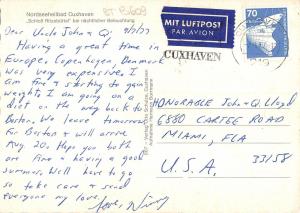 Nordseeheilbad Cuxhaven
„Schloß Ritzebüttel" bei nächtlicher Beleuchtung
MIT LUFTPOST
PAR AVION
70
CUXHAVEN
Dear Uncle John & Q.
Having a great time in
Europe. Copenhagen, Denmark
was very expensive. I
am fine & starting to gain
weight, I am going on a
diet on the way back to
Boston. We leave tomorrow
for Boston & will arrive
Aug. 20. Hope you both
are fine & having a good
summer. We'll have to
go so take care & send
everyone my love.
Love,
HONORABLE John Q. Lloyd
6880 CARTEE ROAD
MIAMI, FLA
33158
U.S.A.